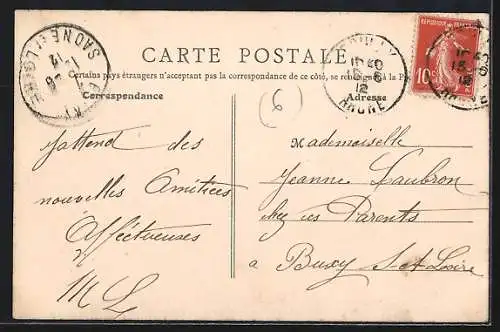 CARTE POSTALE
Certains pays étrangers n'acceptant pas la correspondance de ce côté, se renseigner à la
Correspondance
Adresse
(6)
SAONE-ET-LOIRE
RHONE
12
RHONE
12
10
J'attend des
nouvelles Amitiées
Affectueuses
M L
Mademoiselle
Jeanne Laubron
chez ses Parents
a Buxy S-et-Loire